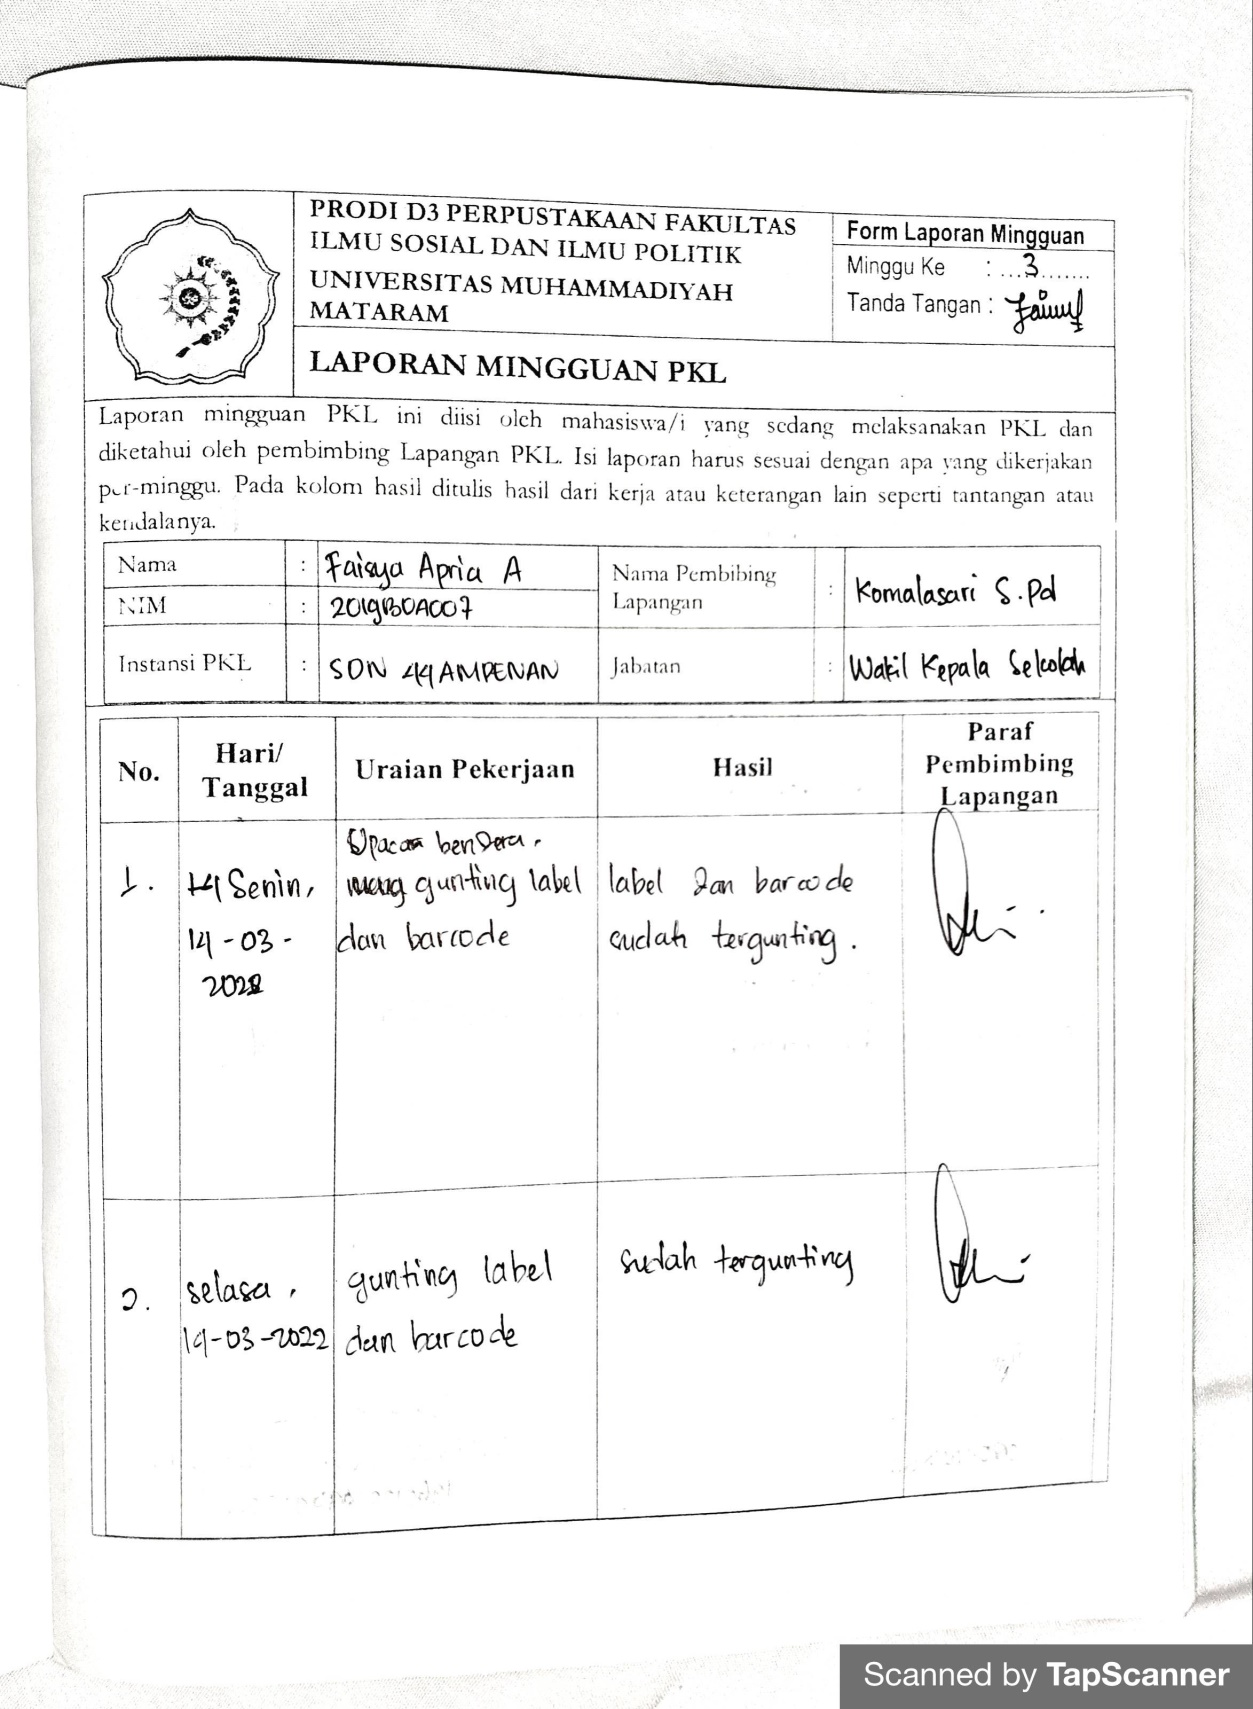 PRODI D3 PERPUSTAKAAN FAKULTAS
ILMU SOSIAL DAN ILMU POLITIK
UNIVERSITAS MUHAMMADIYAH
MATARAM
Form Laporan Mingguan
Minggu Ke : ...3.......
Tanda Tangan :
LAPORAN MINGGUAN PKL
Laporan mingguan PKL ini diisi oleh mahasiswa/i yang sedang melaksanakan PKL dan
diketahui oleh pembimbing Lapangan PKL. Isi laporan harus sesuai dengan apa yang dikerjakan
per-minggu. Pada kolom hasil ditulis hasil dari kerja atau keterangan lain seperti tantangan atau
kendalanya.
Nama : Faisya Apria A
NIM : 2019B0A007
Nama Pembibing
Lapangan : Komalasari S.Pd
Instansi PKL : SDN 44 AMPENAN
Jabatan : Wakil Kepala Sekolah
No.
Hari/
Tanggal
Uraian Pekerjaan
Hasil
Paraf
Pembimbing
Lapangan
1.
Senin,
14-03-
2022
Upacara bendera.
gunting label
dan barcode
label dan barcode
sudah tergunting.
2.
selasa,
-03-2022
gunting label
dan barcode
sudah tergunting
Scanned by TapScanner